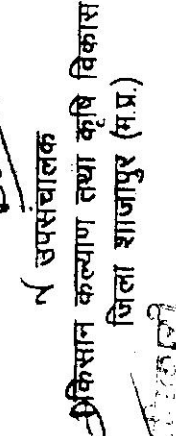 उपसंचालक
किसान कल्याण तथा कृषि विकास
जिला शाजापुर (म.प्र.)